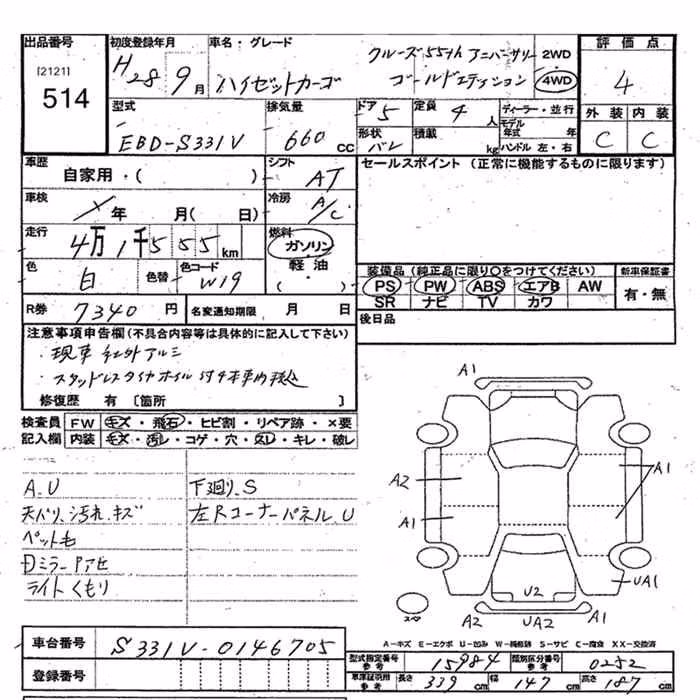 出品番号 初度登録年月 車名・グレード 評価点
[2121]
514
H28 9月
クルーズ55th アニバーサリー
ハイゼットカーゴ ゴールドエディション
2WD
4WD
4
外装 内装
C C
型式 排気量 ドア 定員 ディーラー・並行
EBD-S331V 660 CC 5 4人
形状 積載 モデル年式 年
バン kg ハンドル 左・右
車歴 シフト セールスポイント (正常に機能するものに限ります)
自家用・( ) AT
車検 冷房
年 月( 日) A/C
走行 燃料
4万1千555km ガソリン
・軽油・
( )
色 色替 色コード
白 W19
装備品(純正品に限り○をつけてください) 新車保証書
PS PW ABS エアB AW 有・無
SR ナビ TV カワ
R券 7340円 名変通知期限 月 日
後日品
注意事項申告欄(不具合内容等は具体的に記入して下さい)
・現車 社外アルミ
・スタッドレスタイヤホイル付4本車内積込
修復歴 有 〔箇所 〕
検査員 FW キズ・飛石・ヒビ割・リペア跡・×要
記入欄 内装 キズ・汚レ・コゲ・穴・スレ・キレ・破レ
A、U 下廻り、S
天バリ、汚れ、キズ 左Rコーナーパネル U
ペット毛
ミラー
ライトくもり
A1
A2 A1
A1
UA1
U2
スペア A2 UA2 A2
A-キズ E-エクボ U-凹み W-補修跡 S-サビ C-腐食 XX-交換済
車台番号 S331V-0146705
登録番号
型式指定番号 参考 15984 類別区分番号 参考 0252
車庫証明用 参考 長さ 339cm 幅 147cm 高さ 187cm